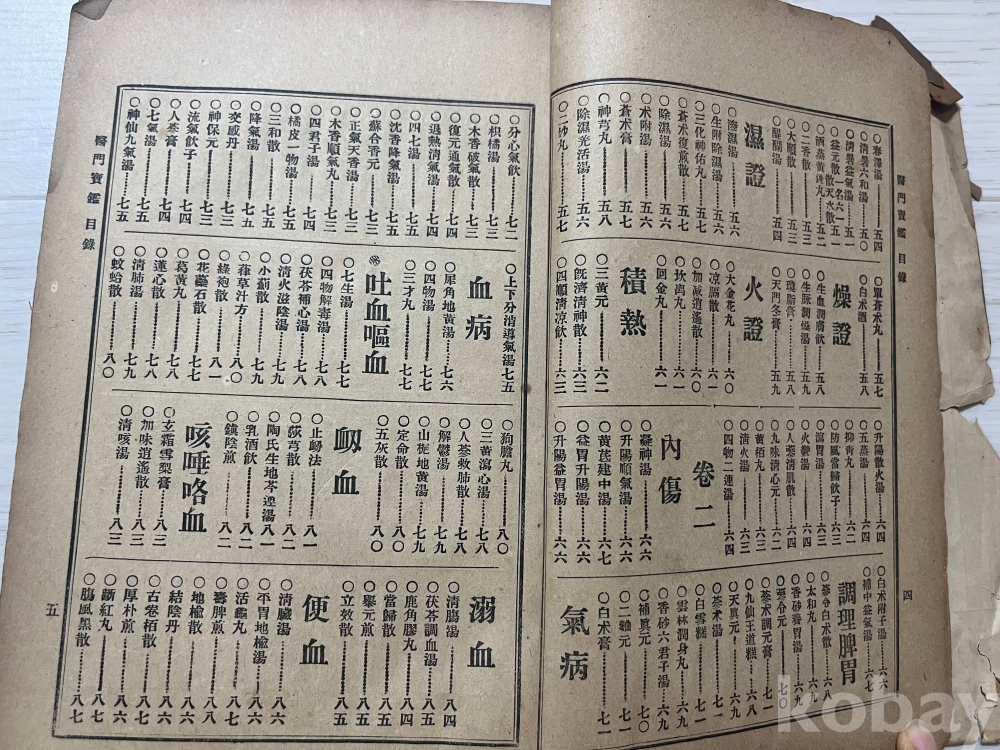 醫門寶鑑 目錄
四
○春澤湯 五四
○淸暑六和湯 五〇
○淸暑益氣湯 五一
○益元散 一名六一散天水散 五一
○酒蒸黃連丸 五二
○二香散 五三
○大順散 五三
○醍醐湯 五四
濕證
○滲濕湯 五六
○生附除濕湯 五六
○三化神佑丸 五七
○蒼朮復煎散 五七
○除濕湯 五六
○朮附湯 五六
○蒼朮膏 五七
○神芎丸 五八
○除濕羌活湯 五六
○二妙丸 五七
○單蒼朮丸 五七
○白朮酒 五八
燥證
○生血潤膚飮 五八
○生脉潤燥湯 五八
○瓊脂膏 五八
○天門冬膏 五九
火證
○大金花丸 六〇
○凉膈散 六〇
○加減逍遙散 六一
○坎离丸 六一
○回金丸 六一
積熱
○三黃元 六二
○旣濟淸神散 六三
○四順淸凉飮 六三
○升陽散火湯 六四
○五蒸湯 六四
○抑靑丸 六二
○防風當歸飮子 六二
○瀉胃湯 六二
○火欝湯 六四
○人蔘淸肌散 六四
○九味淸心元 六二
○黃栢丸 六三
○淸火湯 六三
○四物二連湯 六四
卷二
內傷
○蔘神湯 六六
○升陽順氣湯 六六
○黃芪建中湯 六七
○益胃升陽湯 六六
○升陽益胃湯 六六
○白朮附子湯 六六
○補中益氣湯 六七
調理脾胃
○蔘苓白朮散 六八
○太和丸 六九
○香砂養胃湯 六八
○蔘苓元 七〇
○蔘朮調元膏 七一
○九仙王道糕 六九
○天眞元 六九
○蔘朮湯 七一
○白雪糕 七一
○雲林潤身丸 六九
○香砂六君子湯 六九
○補眞元 七一
○二神元 七〇
○白朮膏 七一
氣病
○分心氣飮 七二
○枳橘湯 七三
○木香破氣散 七三
○復元通氣散 七四
○退熱淸氣湯 七四
○四七湯 七五
○沈香降氣湯 七五
○蘇合香元 七三
○正氣天香湯 七五
○木香順氣丸 七三
○四君子湯 七四
○橘皮一物湯 七四
○三和散 七三
○降氣湯 七五
○交感丹 七五
○神保元 七三
○流氣飮子 七三
○人蔘膏 七四
○七氣湯 七四
○神仙九氣湯 七五
○上下分消導氣湯 七五
血病
○犀角地黃湯 七六
○四物湯 七七
○三才丸 七七
吐血嘔血
○七生湯 七七
○四物解毒湯 七八
○茯苓補心湯 七八
○淸火滋陰湯 七七
○小薊散 七九
○蕵草汁方 八〇
○綠袍散 八一
○花蘂石散 七八
○葛黃丸 七八
○蓮心散 七九
○淸肺湯 七九
○蚊蛤散 八〇
○狗膽丸 八〇
○三黃瀉心湯 七八
○人蔘救肺散 七八
○解欝湯 七九
○山梔地黃湯 七九
○定命散 八〇
○五灰散 八〇
衂血
○止衂法 八一
○莎芎散 八二
○陶氏生地芩連湯 八一
○乳酒飮 八二
○鎭陰煎 八二
咳唾咯血
○玄霜雪梨膏 八三
○加味逍遙散 八三
○淸咳湯 八三
溺血
○淸腸湯 八四
○茯苓調血湯 八五
○鹿角膠丸 八四
○當歸散 八五
○髮元煎 八五
○立效散 八五
便血
○淸臟湯 八六
○平胃地楡湯 八六
○活龜丸 八七
○壽脾煎 八八
○地楡散 八七
○結陰丹 八六
○古卷栢散 八六
○厚朴煎 八六
○斷紅丸 八七
○腸風黑散 八七
醫門寶鑑 目錄
五
kobay